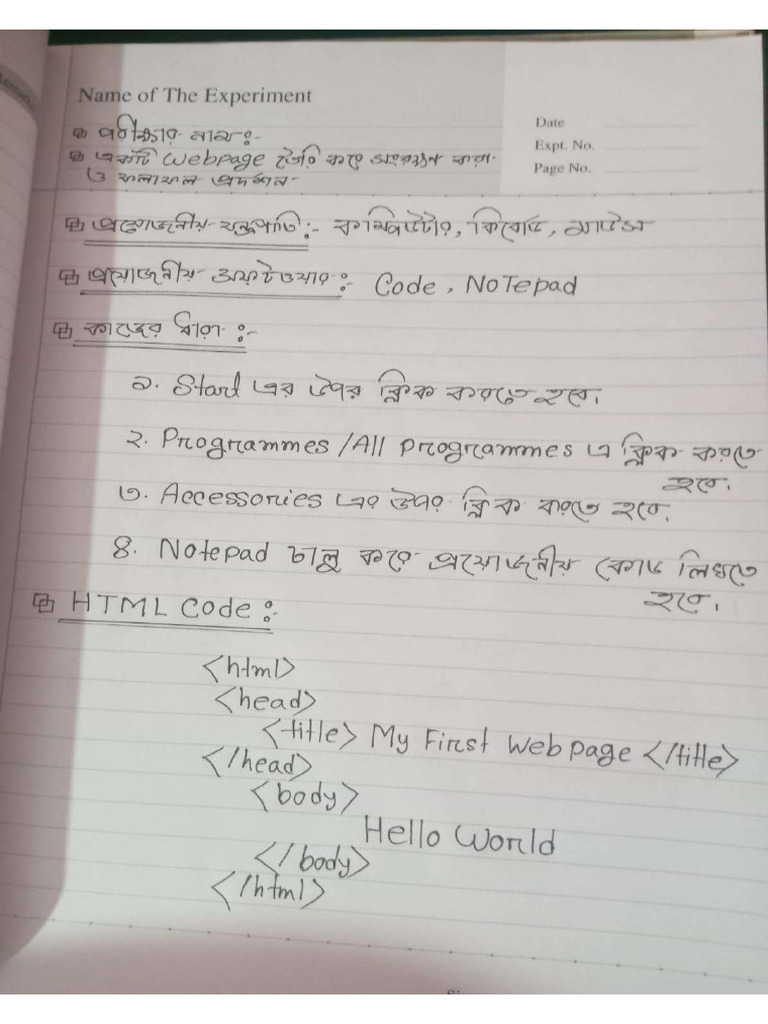 Name of The Experiment
Date
Expt. No.
Page No.
পরীক্ষার নাম:-
একটি Webpage তৈরি করে সংরক্ষণ করা
ও ফলাফল প্রদর্শন
প্রয়োজনীয় যন্ত্রপাতি:- কম্পিউটার, কিবোর্ড, মাউস
প্রয়োজনীয় সফটওয়ার:- Code, NoTepad
কাজের ধারা:-
১. Start এর উপর ক্লিক করতে হবে।
২. Programmes/All programmes এ ক্লিক করতে
হবে।
৩. Accessories এর উপর ক্লিক করতে হবে।
৪. Notepad চালু করে প্রয়োজনীয় কোড লিখতে
হবে।
HTML Code:-
<html>
<head>
<title> My First Web page </title>
</head>
<body>
Hello World
</body>
</html>